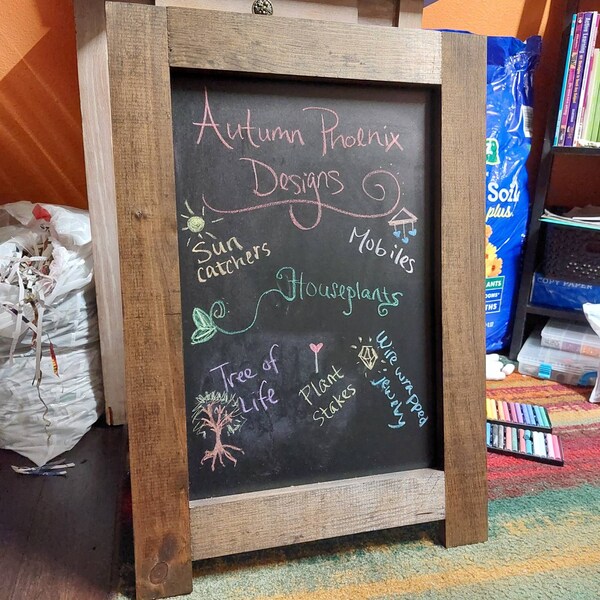 Autumn Phoenix
Designs
Sun
catchers
Mobiles
Houseplants
Tree of
Life
Plant
Stakes
Wire wrapped
jewelry
Soil
plus
COPY PAPER